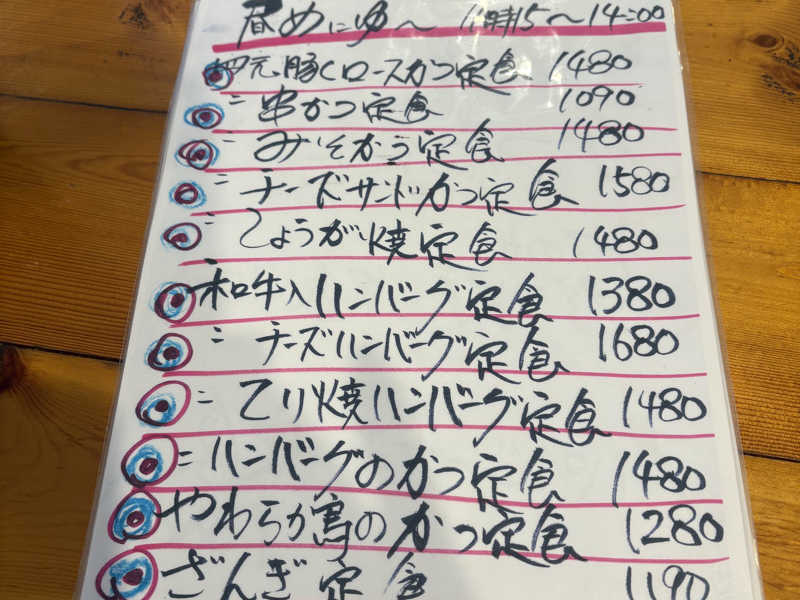 昼めにゅ〜 11時15〜14:00
地元豚ロースかつ定食 1480
〃 串かつ定食 1090
〃 みそかつ定食 1480
〃 チーズサンドかつ定食 1580
〃 しょうが焼定食 1480
和牛入ハンバーグ定食 1380
〃 チーズハンバーグ定食 1680
〃 てり焼ハンバーグ定食 1480
〃 ハンバーグのかつ定食 1480
やわらか鳥のかつ定食 1280
ざんぎ定食 1190